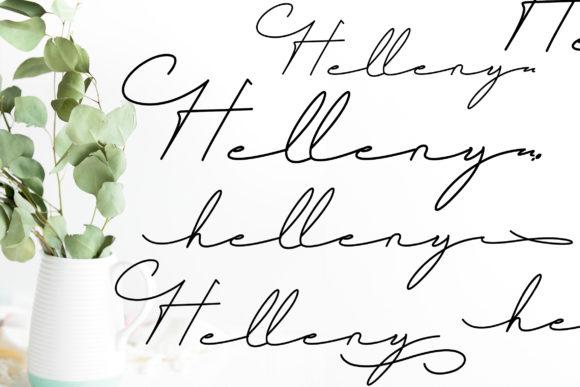 Helleny He
Helleny
helleny
Helleny he